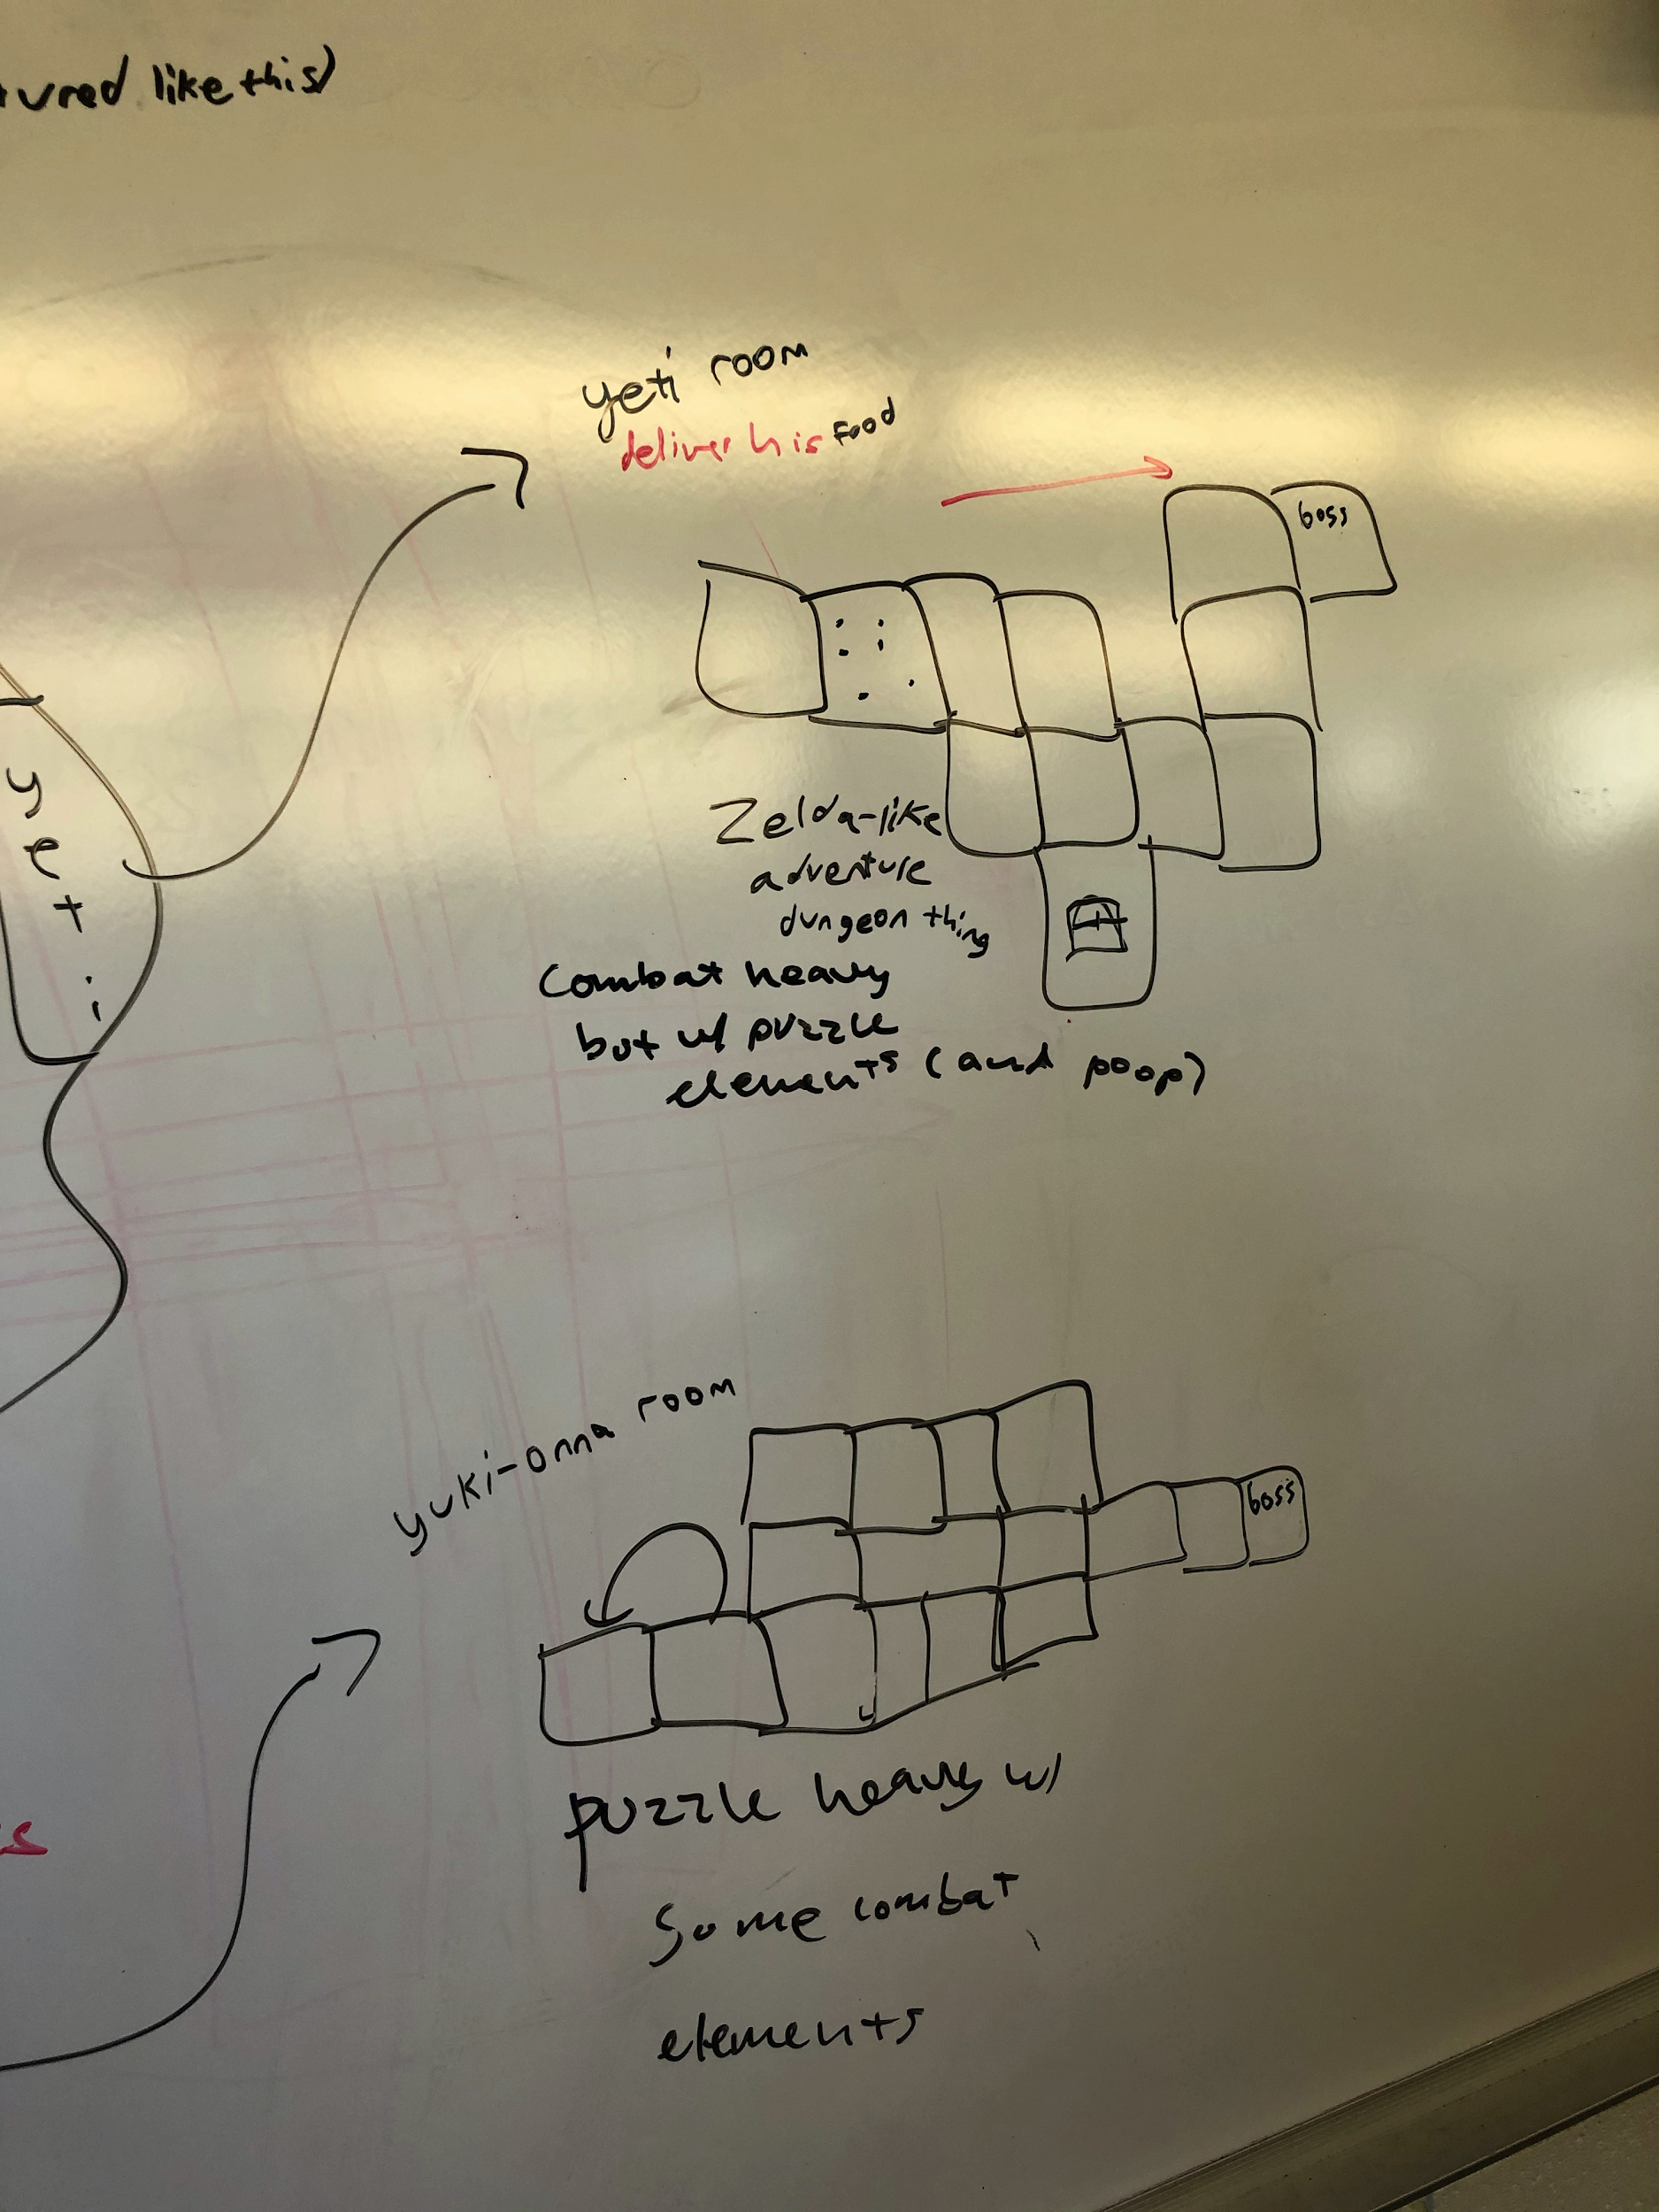 tured like this)
yeti room
deliver his food
boss
yeti
Zelda-like
adventure
dungeon thing
Combat heavy
but w/ puzzle
elements (and poop)
yuki-onna room
boss
puzzle heavy w/
some combat
elements
s